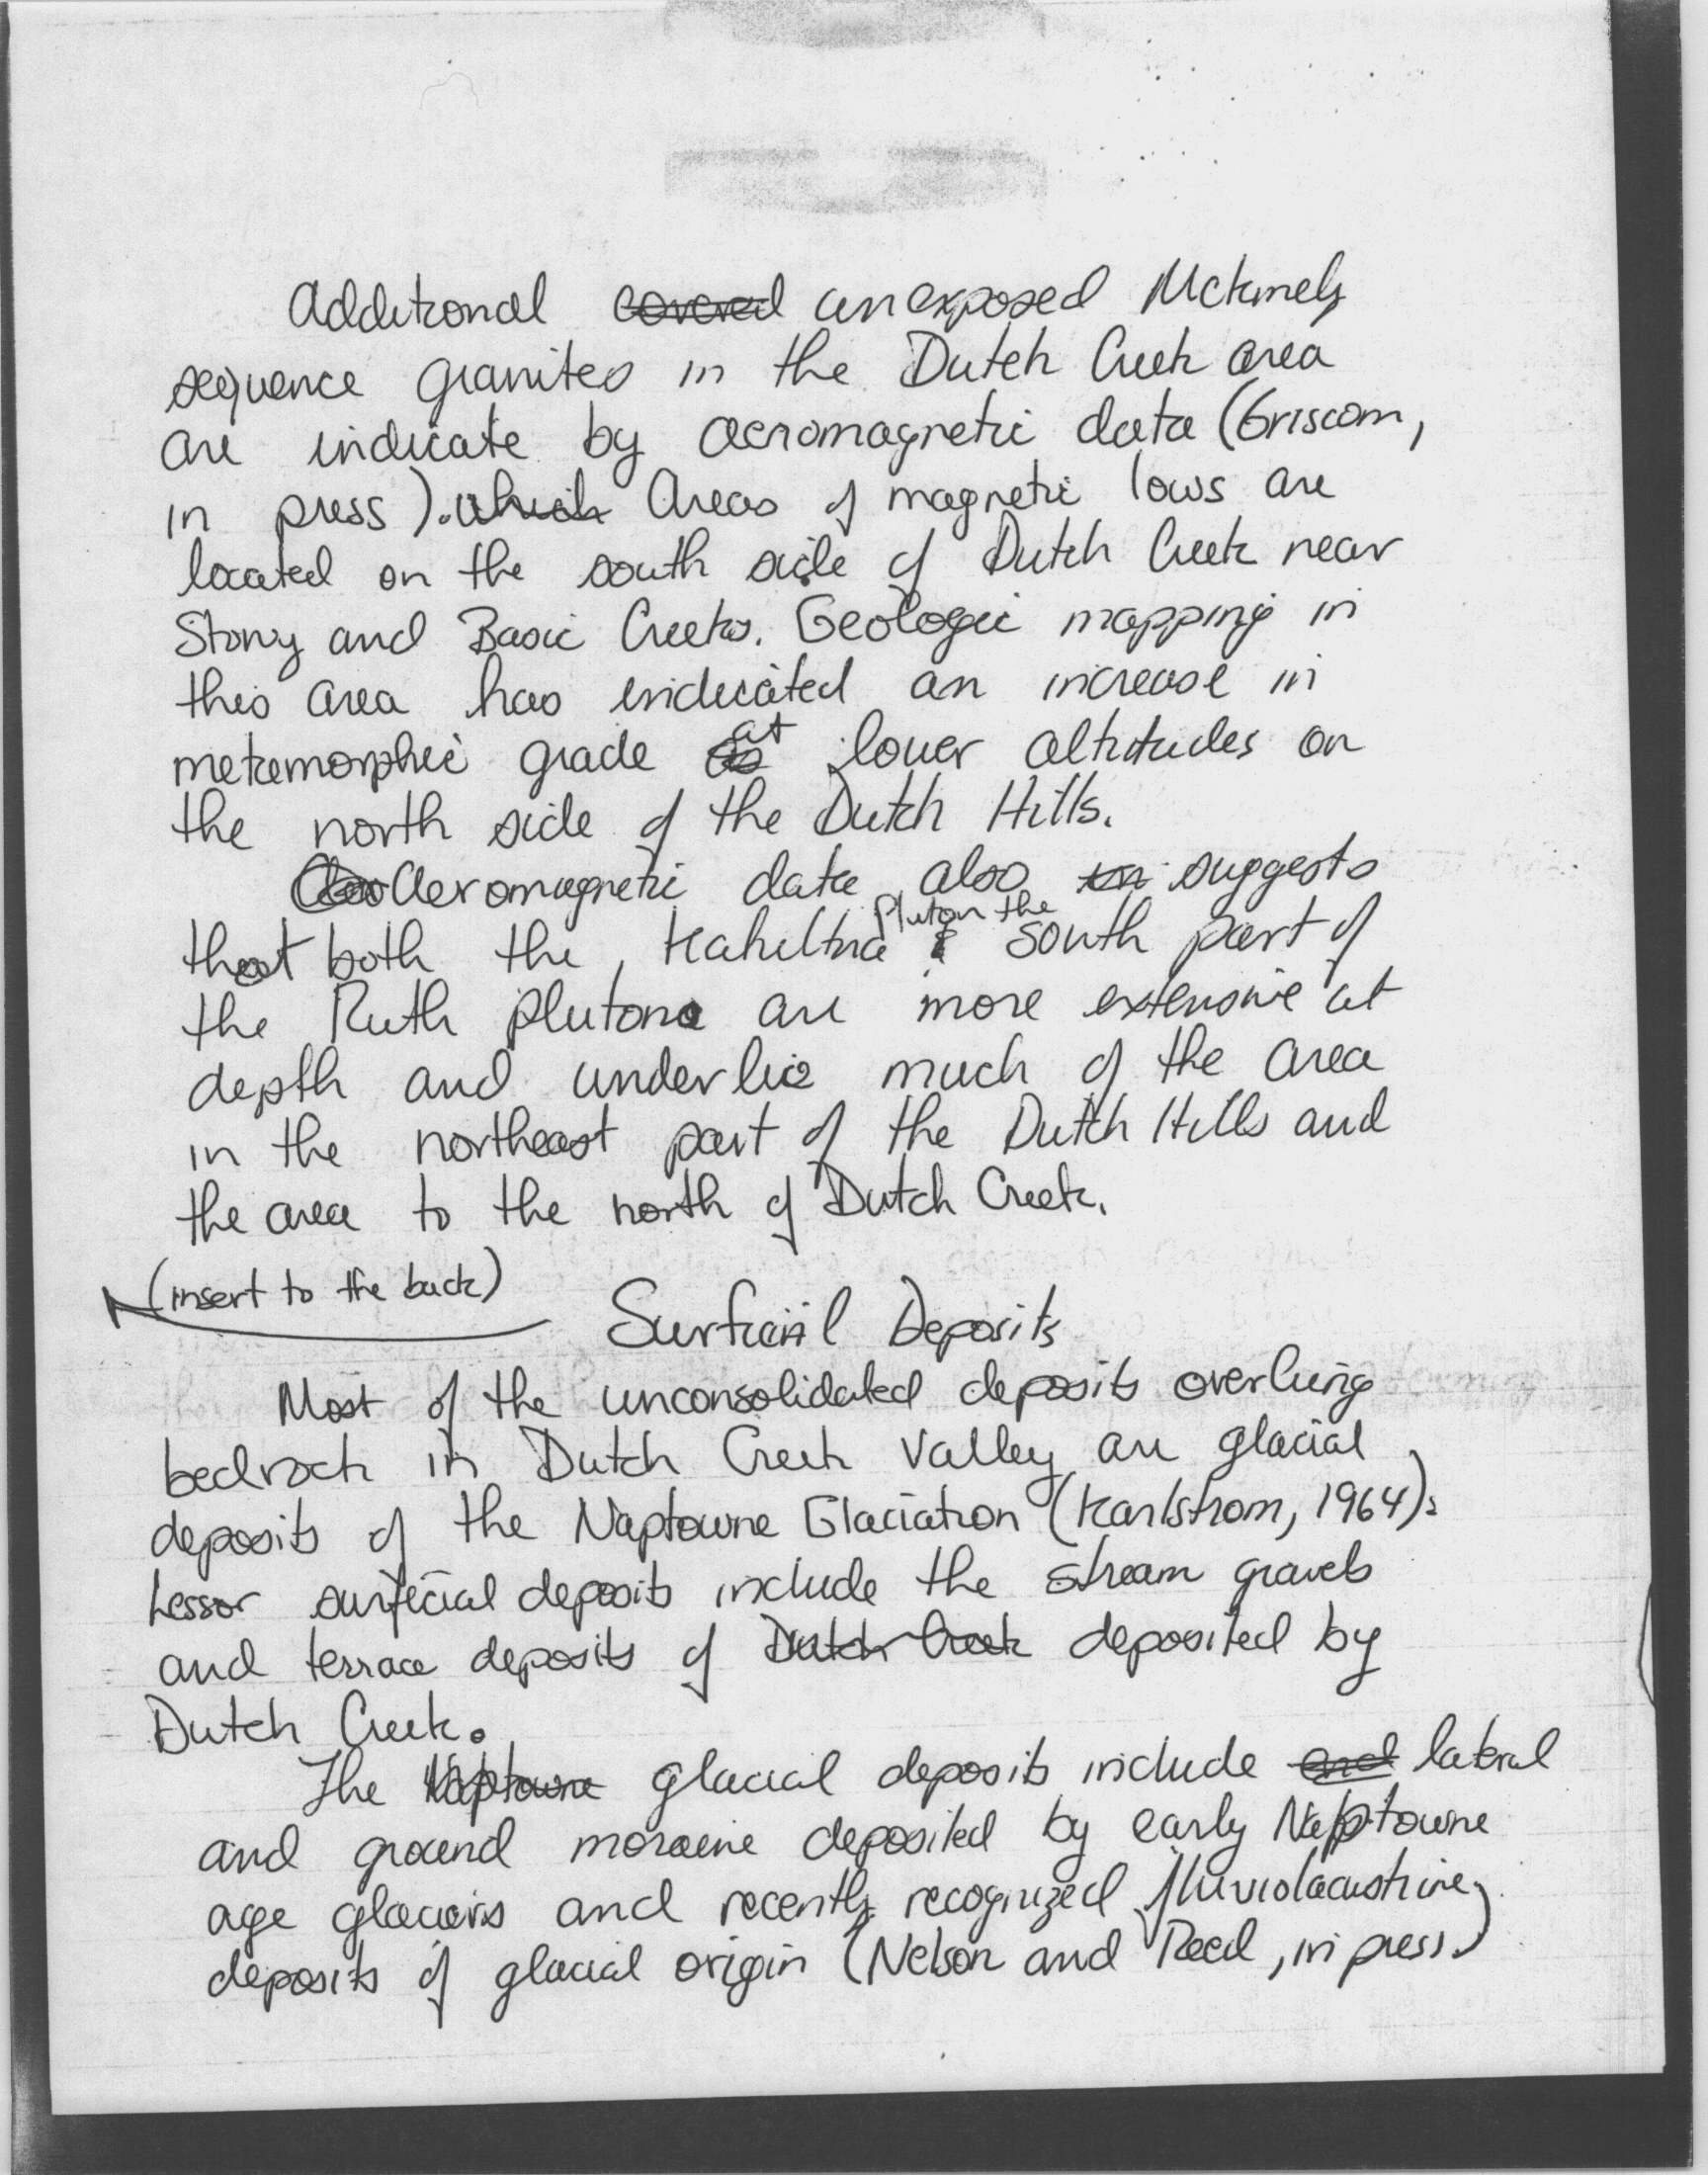 Additional covered unexposed McKinely
sequence granites in the Dutch Creek area
are indicate by aeromagnetic data (Griscom,
in press). which Areas of magnetic lows are
located on the south side of Dutch Creek near
Stony and Basic Creeks. Geologic mapping in
this area has indicated an increase in
metamorphic grade as at lower altitudes on
the north side of the Dutch Hills.
Aeromagnetic data also suggests
that both the Kahiltna pluton & the south part of
the Ruth pluton are more extensive at
depth and underlie much of the area
in the northeast part of the Dutch Hills and
the area to the north of Dutch Creek.
(insert to the back)
Surficial Deposits
Most of the unconsolidated deposits overlying
bedrock in Dutch Creek Valley are glacial
deposits of the Naptowne Glaciation (Karlstrom, 1964).
Lessor surfecial deposits include the stream gravels
and terrace deposits of Dutch Creek deposited by
Dutch Creek.
The Naptowne glacial deposits include end lateral
and ground moraine deposited by early Naptowne
age glaciers and recently recognized fluviolacustrine
deposits of glacial origin (Nelson and Reed, in press)